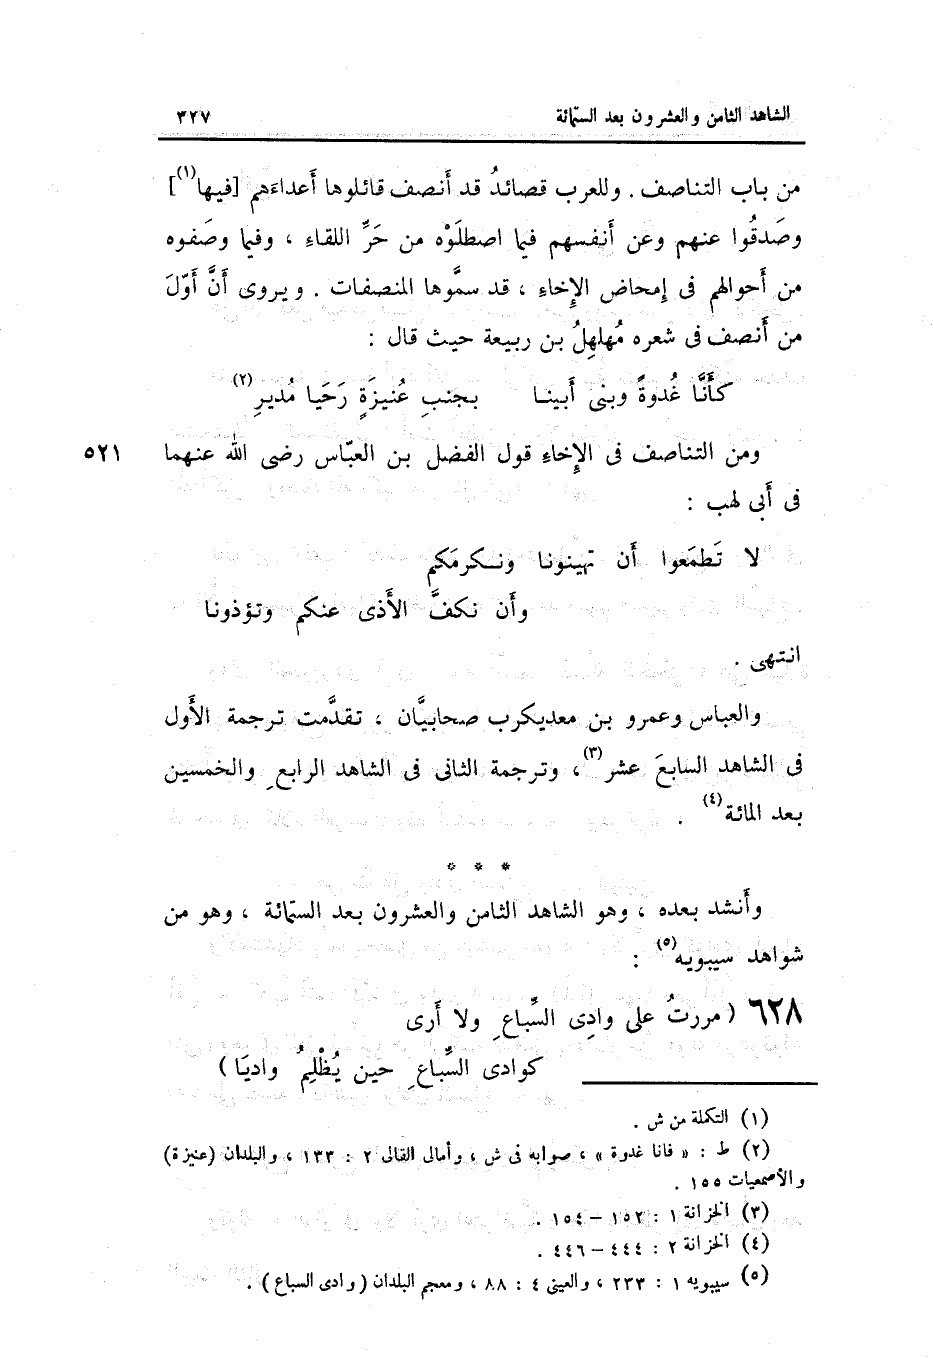 الشاهد الثامن والعشرون بعد الستمائة ٣٢٧
من باب التناصف . وللعرب قصائدُ قد أَنصف قائلوها أَعداءَهم [فيها(١)]
وصَدقُوا عنهم وعن أَنفسهم فيما اصطلَوْه من حَرِّ اللقاءِ ، وفيما وصَفوه
من أَحوالهم فى إمحاض الإِخاءِ ، قد سمَّوها المنصفات . ويروى أَنَّ أَوّلَ
من أَنصف فى شعره مُهلهِلُ بن ربيعة حيث قال :
كأَنَّا غُدوةً وبنى أَبينا بجنبِ عُنيزَةٍ رَحَيا مُديرِ(٢)
ومن التناصف فى الإِخاءِ قول الفضل بن العبّاس رضى الله عنهما ٥٢١
فى أَبى لهب :
لا تَطمَعوا أَن تهينونا ونكرمَكم
وأَن نكفَّ الأَذى عنكم وتؤذونا
انتهى .
والعباس وعمرو بن معديكرب صحابيَّان ، تقدَّمت ترجمة الأَول
فى الشاهد السابعَ عشر(٣)، وترجمة الثانى فى الشاهد الرابعِ والخمسين
بعد المائة(٤) .
* * *
وأَنشد بعده ، وهو الشاهد الثامن والعشرون بعد الستمائة ، وهو من
شواهد سيبويه(٥) :
٦٢٨ ( مررتُ على وادِى السِّباعِ ولا أَرى
كوادى السِّباعِ حين يُظْلِمُ وادِيَا )
(١) التكملة من ش .
(٢) ط : « فانا غدوة » ، صوابه فى ش ، وأمالى القالى ٢ : ١٣٣ ، والبلدان (عنيزة)
والأصمعيات ١٥٥ .
(٣) الخزانة ١ : ١٥٢ – ١٥٤ .
(٤) الخزانة ٢ : ٤٤٤ – ٤٤٦ .
(٥) سيبويه ١ : ٢٣٣ ، والعينى ٤ : ٨٨ ، ومعجم البلدان ( وادى السباع ) .